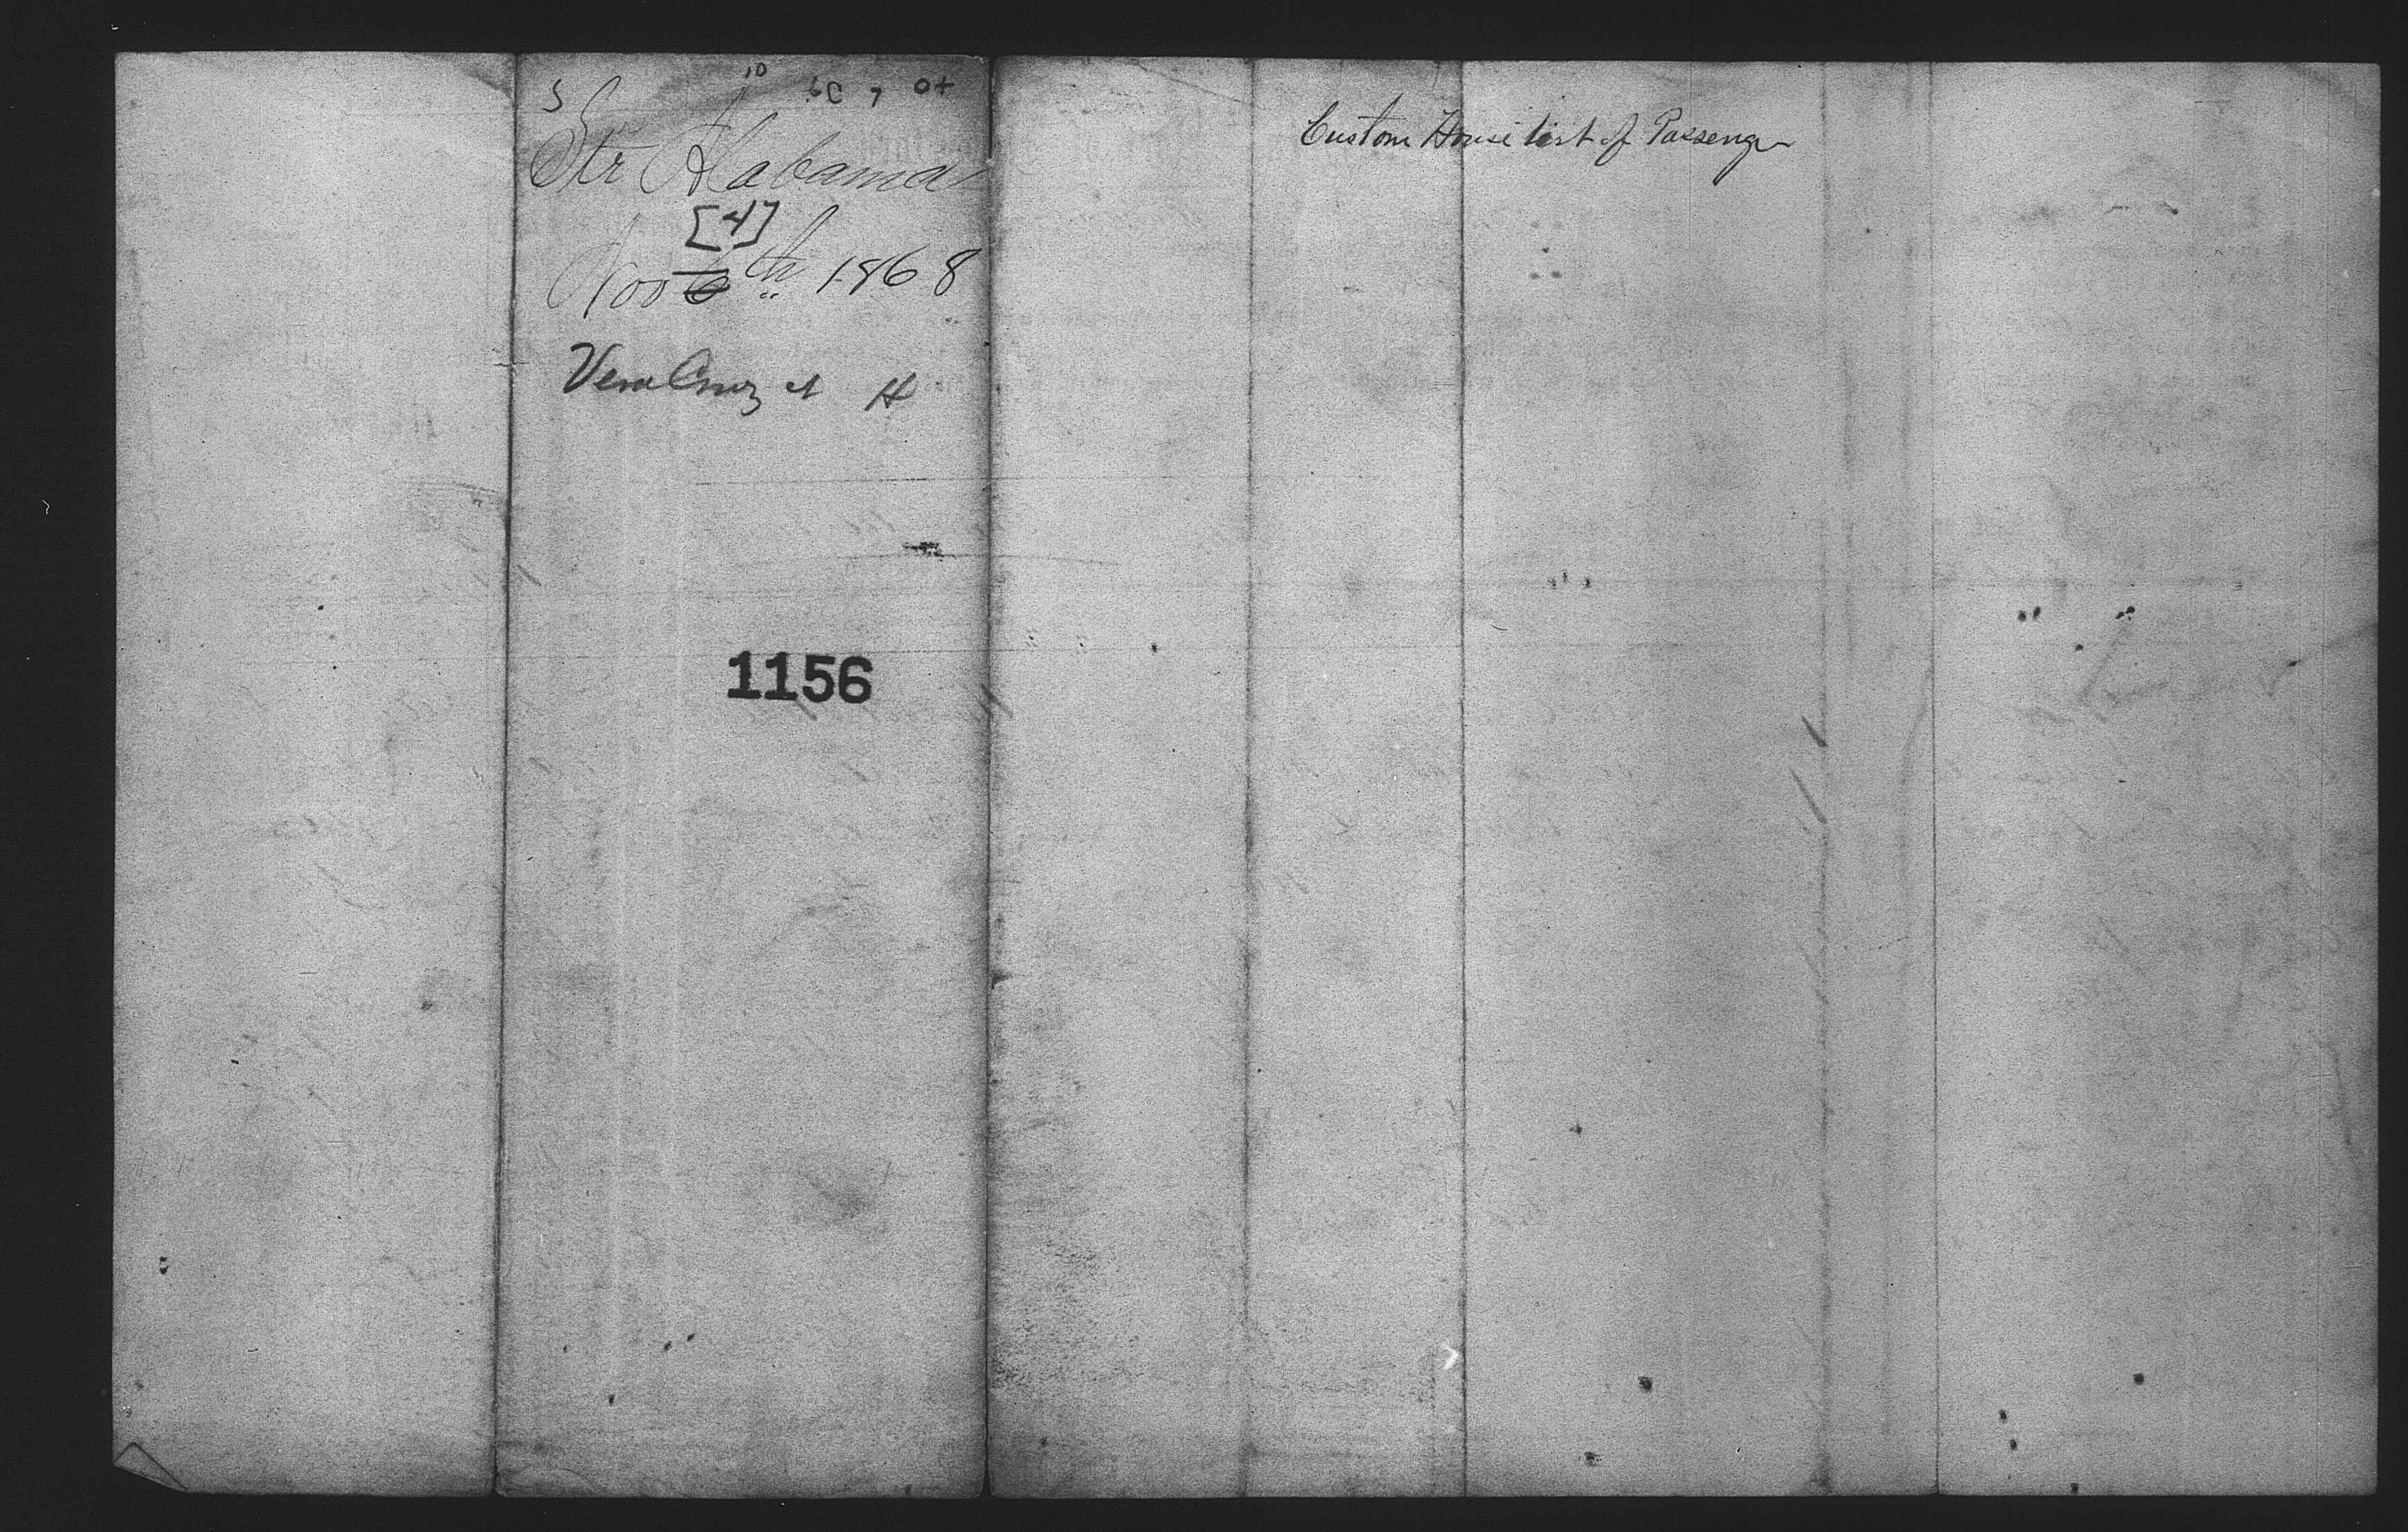 Str Alabama
[4]
Nov 6th 1868
Vera Cruz et H
1156
Custom House list of Passenger